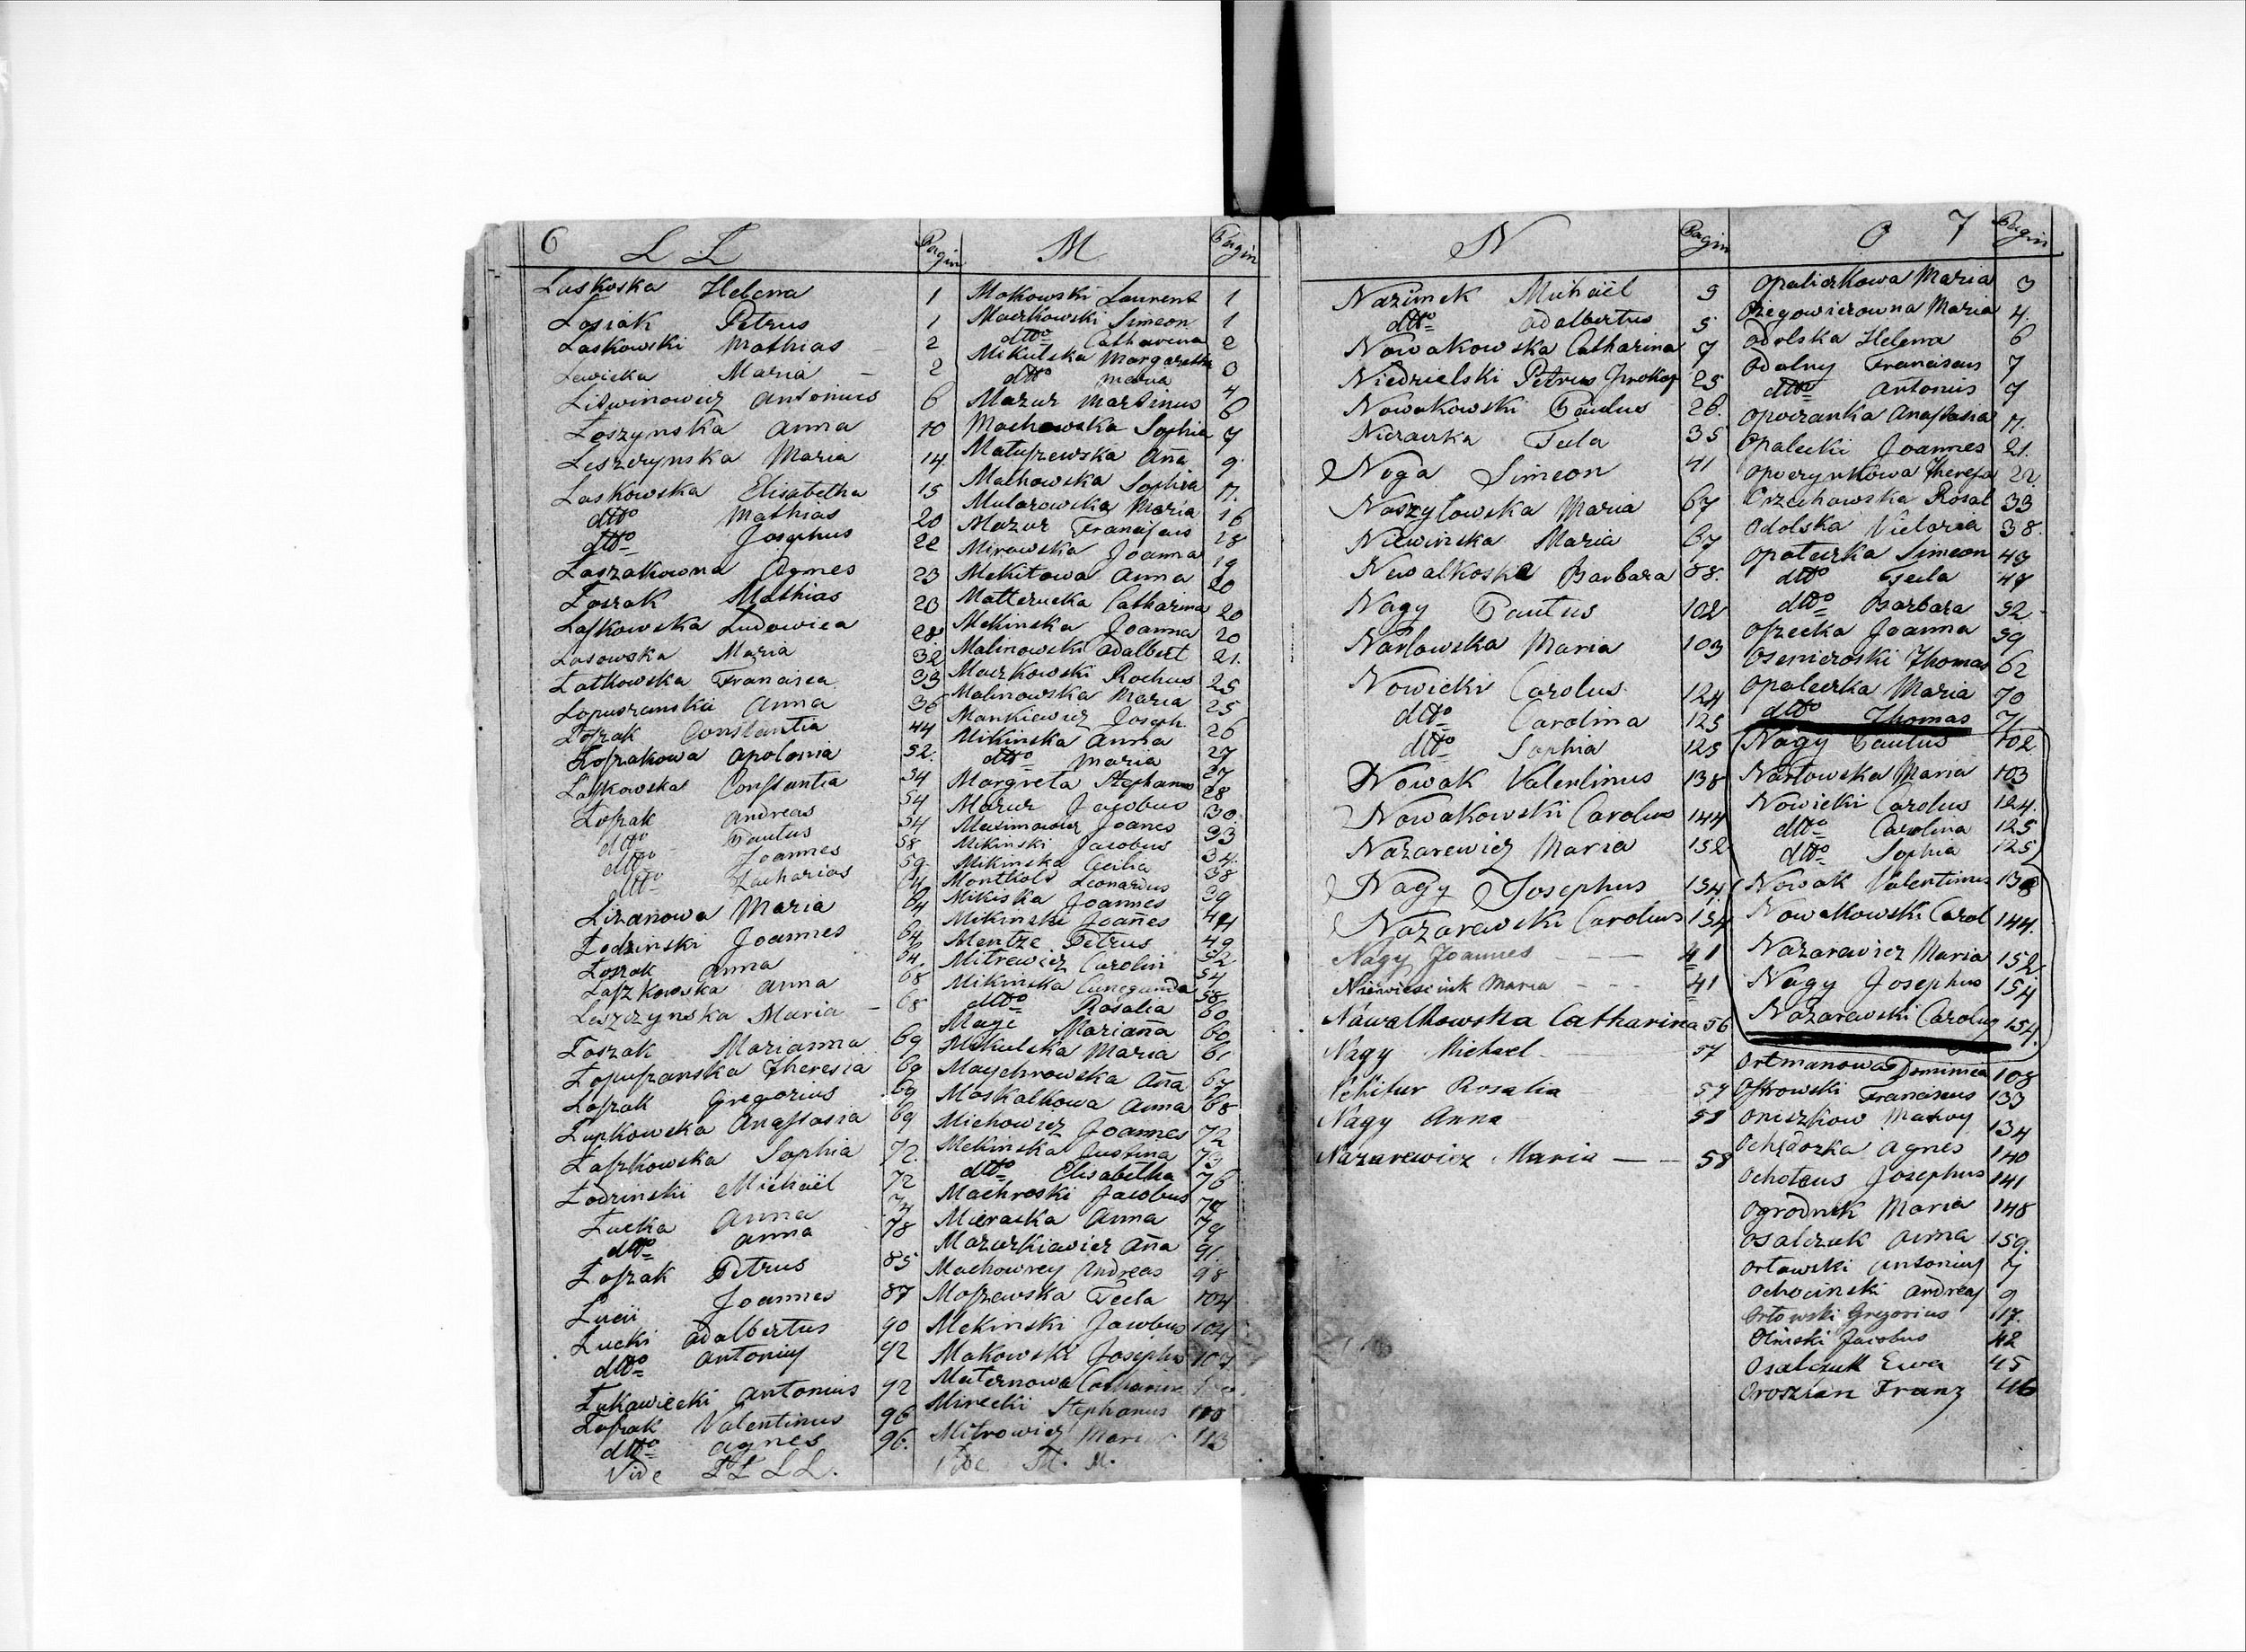 6 L Ł Pagin
Laskoska Helena 1
Łosiak Petrus 1
Laskowski Mathias 2
Lewicka Maria 2
Litwinowicz Antonius 6
Loszynska Anna 10
Leszczynska Maria 14.
Laskowska Elisabetha 15
dtto Mathias 20
dtto Josephus 22
Laszakowna Agnes 23
Łoszak Mathias 23
Laskowska Ludowica 28
Lasowska Maria 32
Łatkowska Francisca 33
Lopuszanska Anna 36
Łoszak Constantia 44
Łoszakowa Apolonia 52.
Laskowska Constantia 54
Łoszak Andreas 54
dtto Paulus 54
dtto Joannes 58
dtto Zacharias 59.
Lizanowa Maria 64
Łodzinski Joannes 64
Łoszak Anna 64
Laszkowska Anna 68
Leszczynska Maria 68
Łoszak Marianna 69
Łopuszanska Theresia 69
Łoszak Gregorius 69
Łupkowska Anastasia 69
Łaszkowska Sophia 72.
Łodzinski Michaël 72
Łucka Anna 74
dtto Anna 78
Łoszak Petrus 85
Łucii Joannes 87
Łucki Adalbertus 90
dtto Antoniy 92
Łukawiecki Antonius 92
Łoszak Valentinus 96
dtto Agnes 96.
Vide ŁŁ LL.
M Pagin
Makowski Laurent 1
Maczkowski Simeon 1
dtto Catharina 2
Mikulska Margaretha 3
dtto Maria 4
Mazur Martinus 6
Machowska Sophia 7
Matuszewska Ana 9.
Malhowska Sophia 11.
Mularowska Maria 16
Mazur Franciscus 18
Mirowska Joanna 19
Mekitowa Anna 20
Matterucka Catharina 20
Mekinska Joanna 20
Malinowski Adalbert 21.
Maczkowski Rochus 25
Malinowska Maria 25
Mankiewicz Joseph 26
Mikinska Anna 27
dtto Maria 27
Margreta Stephanus 28
Mazur Jacobus 30.
Maximowicz Joanes 33
Mikinski Jacobus 34.
Mikinska Cecilia 38
Leonardus 39
Mikiska Joannes 44
Mikinski Joañes 49
Mentze Petrus 52
Mitrewicz Carolin 54
Mikinska Cunegunda 58
dtto Rosalia 60
Maye Mariaña 60
Mikulska Maria 61
Maychrowska Aña 67
Moskalkowa Anna 68
Michowicz Joannes 72
Mekinska Justina 73
dtto Elisabetha 76
Machroski Jacobus 78
Mieracka Anna 79
Mazurkiewicz Aña 91.
Machowrey Andreas 98
Moszewska Tecla 104
Mekinski Jacobus 104
Makowski Josephus 107
Maternowa Catharin
Mirecki Stephanus 110
Mitrowicz Mari 113
Vide M. M.
N Pagin
Nazimek Michaël 5
dtto Adalbertus 5
Nowakowska Catharina 7
Niedzielski Petrus Prokop 25
Nowakowski Paulus 26.
Nieracka Tecla 35
Noga Simeon 41
Naszyłowska Maria 67
Niewinska Maria 67
Newalkoska Barbara 88.
Nagy Paulus 102
Narłowska Maria 103
Nowicki Carolus 124
dtto Carolina 125
dtto Sophia 125
Nowak Valentinus 138
Nowakowski Carolus 144
Nazarewicz Maria 152
Nagy Josephus 154
Nazarewski Carolus 154
Nagy Joannes 41
Niewiesciuk Maria 41
Nawalkowska Catharina 56
Nagy Michael 57
Nehitur Rosalia 57
Nagy Anna 58
Nazarewicz Maria 58
O 7 Pagin
Opaliczkowa Maria 3
Ożegowiczowna Maria 4.
Odolska Helena 6
Odolny Franciscus 7
dtto Antonius 7
Opoczanka Anastasia 11.
Opalecki Joannes 21.
Opoczynkowa Theresa 22.
Orzechowska Rosal 33
Odolska Victoria 38.
Opatecka Simeon 43
dtto Tecla 47
dtto Barbara 52.
Oszecka Joanna 59
Osmieroski Thomas 62
Opalecka Maria 70
dtto Thomas 71
Nagy Paulus 102
Narłowska Maria 103
Nowicki Carolus 124.
dtto Carolina 125
dtto Sophia 125
Nowak Valentinus 138
Nowakowski Carol 144.
Nazarewicz Maria 152
Nagy Josephus 154
Nazarewski Carolus 154.
Ortmanowa Dominica 108
Ostrowski Franciscus 133
Oniszkow Matwy 134
Ochędozka Agnes 140
Ochotcus Josephus 141
Ogrodnik Maria 148
Osalczuk Anna 159.
Orławski Antoniuș 7
Ochocinski Andreaș 9
Orłowski Gregorius 17.
Olinski Jacobus 42
Osalczuk Ewa 45
Oroszian Franz 46